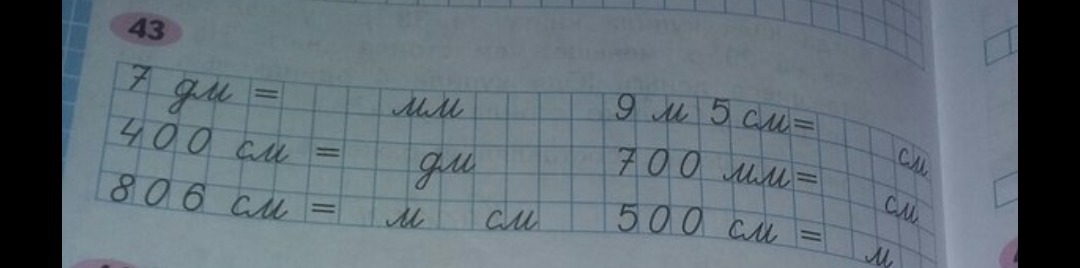 43
7 дм = мм 9 м 5 см = см
400 см = дм 700 мм = см
806 см = м см 500 см = м